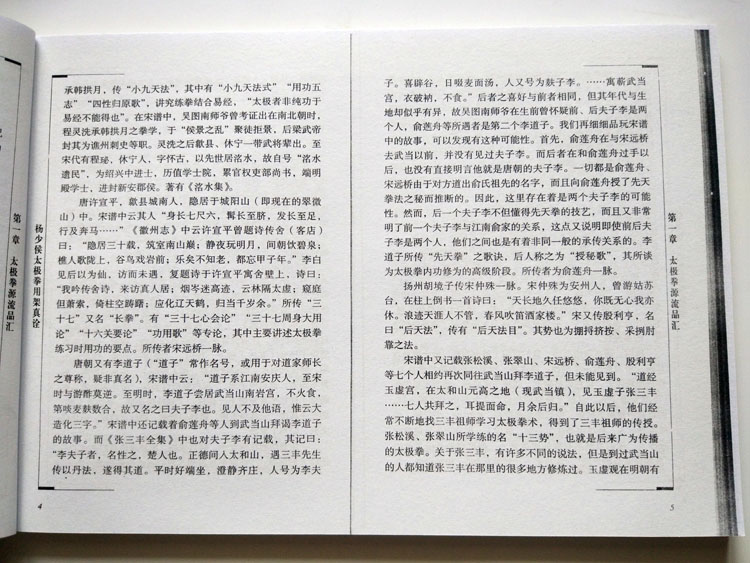 承韩拱月，传“小九天法”，其中有“小九天法式”“用功五
志”“四性归原歌”，讲究练拳结合易经，“太极者非纯功于
易经不能得也”。在宋谱中，吴图南师爷曾考证出在南北朝时，
程灵洗承韩拱月之拳学，于“侯景之乱”聚徒拒景，后梁武帝
封其为谯州刺史等职。灵洗之后歙县、休宁一带武将辈出。至
宋代有程珌，休宁人，字怀古，以先世居洺水，故自号“洺水
遗民”，为绍兴中进士，历值学士院，累官权吏部尚书，端明
殿学士，进封新安郡侯。著有《洺水集》。
唐许宣平，歙县城南人，隐居于城阳山（即现在的翠微
山）中。宋谱中云其人“身长七尺六，髯长至脐，发长至足，
行及奔马……”《徽州志》中云许宣平曾题诗传舍（客店）
曰：“隐居三十载，筑室南山巅；静夜玩明月，间朝饮碧泉；
樵人歌陇上，谷鸟戏岩前；乐矣不知老，都忘甲子年。”李白
见后以为仙，访而未遇，复题诗于许宣平寓舍壁上，诗曰：
“我吟传舍诗，来访真人居；烟岑迷高迹，云林隔太虚；窥庭
但萧索，倚柱空踟躇；应化辽天鹤，归当千岁余。”所传“三
十七”又名“长拳”。有“三十七心会论”“三十七周身大用
论”“十六关要论”“功用歌”等专论，其中主要讲述太极拳
练习时用功的要点。所传者宋远桥一脉。
唐朝又有李道子（“道子”常作名号，或用于对道家师长
之尊称，疑非真名），宋谱中云：“道子系江南安庆人，至宋
时与游酢莫逆。至明时，李道子尝居武当山南岩宫，不火食，
第啖麦麸数合，故又名之曰夫子李也。见人不及他语，惟云大
造化三字。”宋谱中还记载着俞莲舟等人到武当山拜谒李道子
的故事。而《张三丰全集》中也对夫子李有记载，其记曰：
“李夫子者，名性之，楚人也。正德间入太和山，遇三丰先生
传以丹法，遂得其道。平时好端坐，澄静齐庄，人号为李夫
4
杨少侯太极拳用架真诠
第一章 太极拳源流品汇
子。喜辟谷，日啜麦面汤，人又号为麸子李。……寓蕲武当
宫，衣破衲，不食。”后者之喜好与前者相同，但其年代与生
地却似乎有异，故吴图南师爷在生前曾怀疑前、后夫子李是两
个人，俞莲舟等所遇者是第二个李道子。我们再细细品玩宋谱
中的故事，可以发现有这种可能性。首先，俞莲舟在与宋远桥
去武当以前，并没有见过夫子李。而后者在和俞莲舟过手以
后，也没有直接明言他就是唐朝的夫子李。一切都是俞莲舟、
宋远桥由于对方道出俞氏祖先的名字，而且向俞莲舟授了先天
拳法之秘而推断的。因此，这里存在着是两个夫子李的可能
性。然而，后一个夫子李不但懂得先天拳的技艺，而且又非常
明了前一个夫子李与江南俞家的关系，这点又说明即使前后夫
子李是两个人，他们之间也是有着非同一般的承传关系的。李
道子所传“先天拳”之歌诀，后人称之为“授秘歌”，其所谈
为太极拳内功修为的高级阶段。所传者为俞莲舟一脉。
扬州胡境子传宋仲殊一脉。宋仲殊为安州人，曾游姑苏
台，在柱上倒书一首诗曰：“天长地久任悠悠，你既无心我亦
休。浪迹天涯人不管，春风吹笛酒家楼。”宋又传殷利亨，名
曰“后天法”，传有“后天法目”。其势也为掤捋挤按、采挒肘
靠之法。
宋谱中又记载张松溪、张翠山、宋远桥、俞莲舟、殷利亨
等七个人相约再次同往武当山拜李道子，但未能见到。“道经
玉虚宫，在太和山元高之地（现武当镇），见玉虚子张三丰
……七人共拜之，耳提面命，月余后归。”自此以后，他们经
常不断地找三丰祖师学习太极拳术，得到了三丰祖师的传授。
张松溪、张翠山所学练的名“十三势”，也就是后来广为传播
的太极拳。关于张三丰，有许多不同的说法，但是到过武当山
的人都知道张三丰在那里的很多地方修炼过。玉虚观在明朝有
5
第一章 太极拳源流品汇